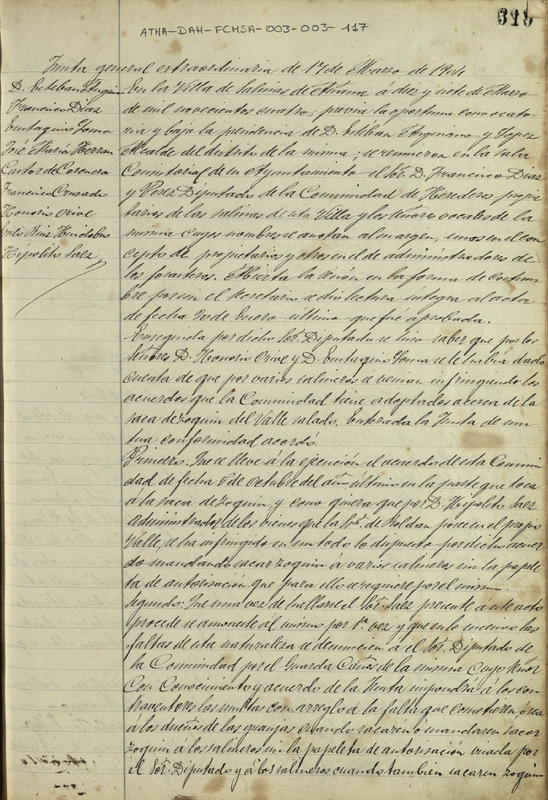 ATHA-DAH-FCMSA-003-003-117
Junta general extraordinaria de 17 de Marzo de 1904
D. Esteban Angui
Francisco Diaz
Eustaquio Toma
José Maria Herran
Castor de Corcuera
Francisco Cruzado
Honorio Orive
Ruiz
Hipolito Saez
En la Villa de Salinas de Añana á diez y siete de Marzo
de mil novecientos cuatro, previa la oportuna convocato-
ria y bajo la presidencia de D. Estéban Anguiano y Lopez
Alcalde del distrito de la misma; se reunieron en la sala
Consistorial de su Ayuntamiento el Sor. D. Francisco Diaz
y Perez Diputado de la Comunidad de Herederos propie-
tarios de las salinas de esta Villa y los Señores vocales de la
misma cuyos nombres se anotan al margen, unos en el con-
cepto de propietarios y otros en el de administradores de
los forasteros. Abierta la sesión en la forma de costum-
bre por mi el Secretario se dio lectura integra al acta
de fecha 20 de Enero último que fué aprobada.
Enseguida por dicho Sor. Diputado se hizo saber que por los
Señores D. Honorio Orive y D. Eustaquio Toma se le habia dado
cuenta de que por varios salineros se venian infringiendo los
acuerdos que la Comunidad tiene adoptados acerca de la
saca de zoquin del Valle salado. Enterada la Junta de un-
tua conformidad acordó
Primero. Que se lleve á la ejecución el acuerdo de esta Comuni-
dad de fecha de Octubre del año último en la parte que toca
á la saca de zoquin y como quiera que por D. Hipolito Saez
Administrador de los bienes que la Sra. de Roldan posee en el propio
Valle, se ha infringido en un todo lo dispuesto por dicho acuer-
do mandando sacar zoquin á varios salineros sin la papele-
ta de autorización que para ello se requiere por el mismo.
Segundo: Que una vez de hallarse el Sor. Saez presente á este acto
procede se amoneste al mismo por 1ª vez y que en lo sucesivo las
faltas de esta naturaleza se denuncien á el Sor. Diputado de
la Comunidad por el Guarda Cañero de la misma cuyo Señor
con Conocimiento y acuerdo de la Junta impondrá á los con-
traventores las multas con arreglo á la falta que cometieren, ó sea
á los dueños de las granjas cuando sacaren ó mandaren sacar
zoquin a los salineros sin la papeleta de autorización visada por
el Sor. Diputado y á los salineros cuando tambien sacaren zoquin